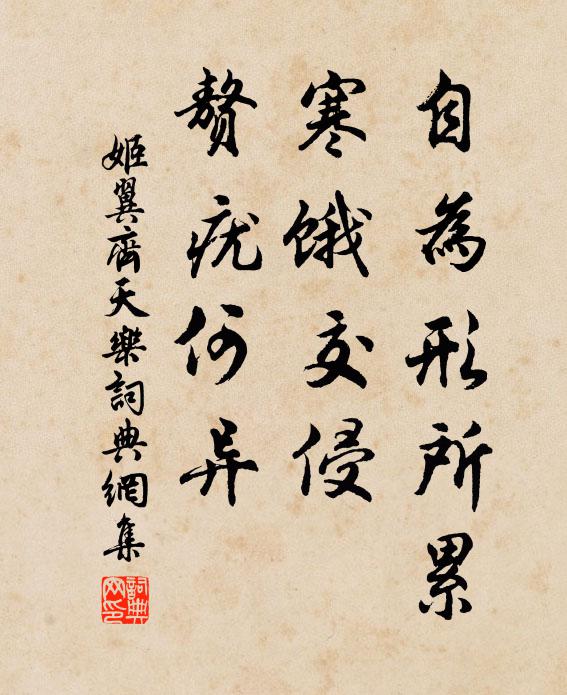 自為形所累
寒餓交侵
贅疣何异
姬翼齊天樂詞典網集
詞典
网印